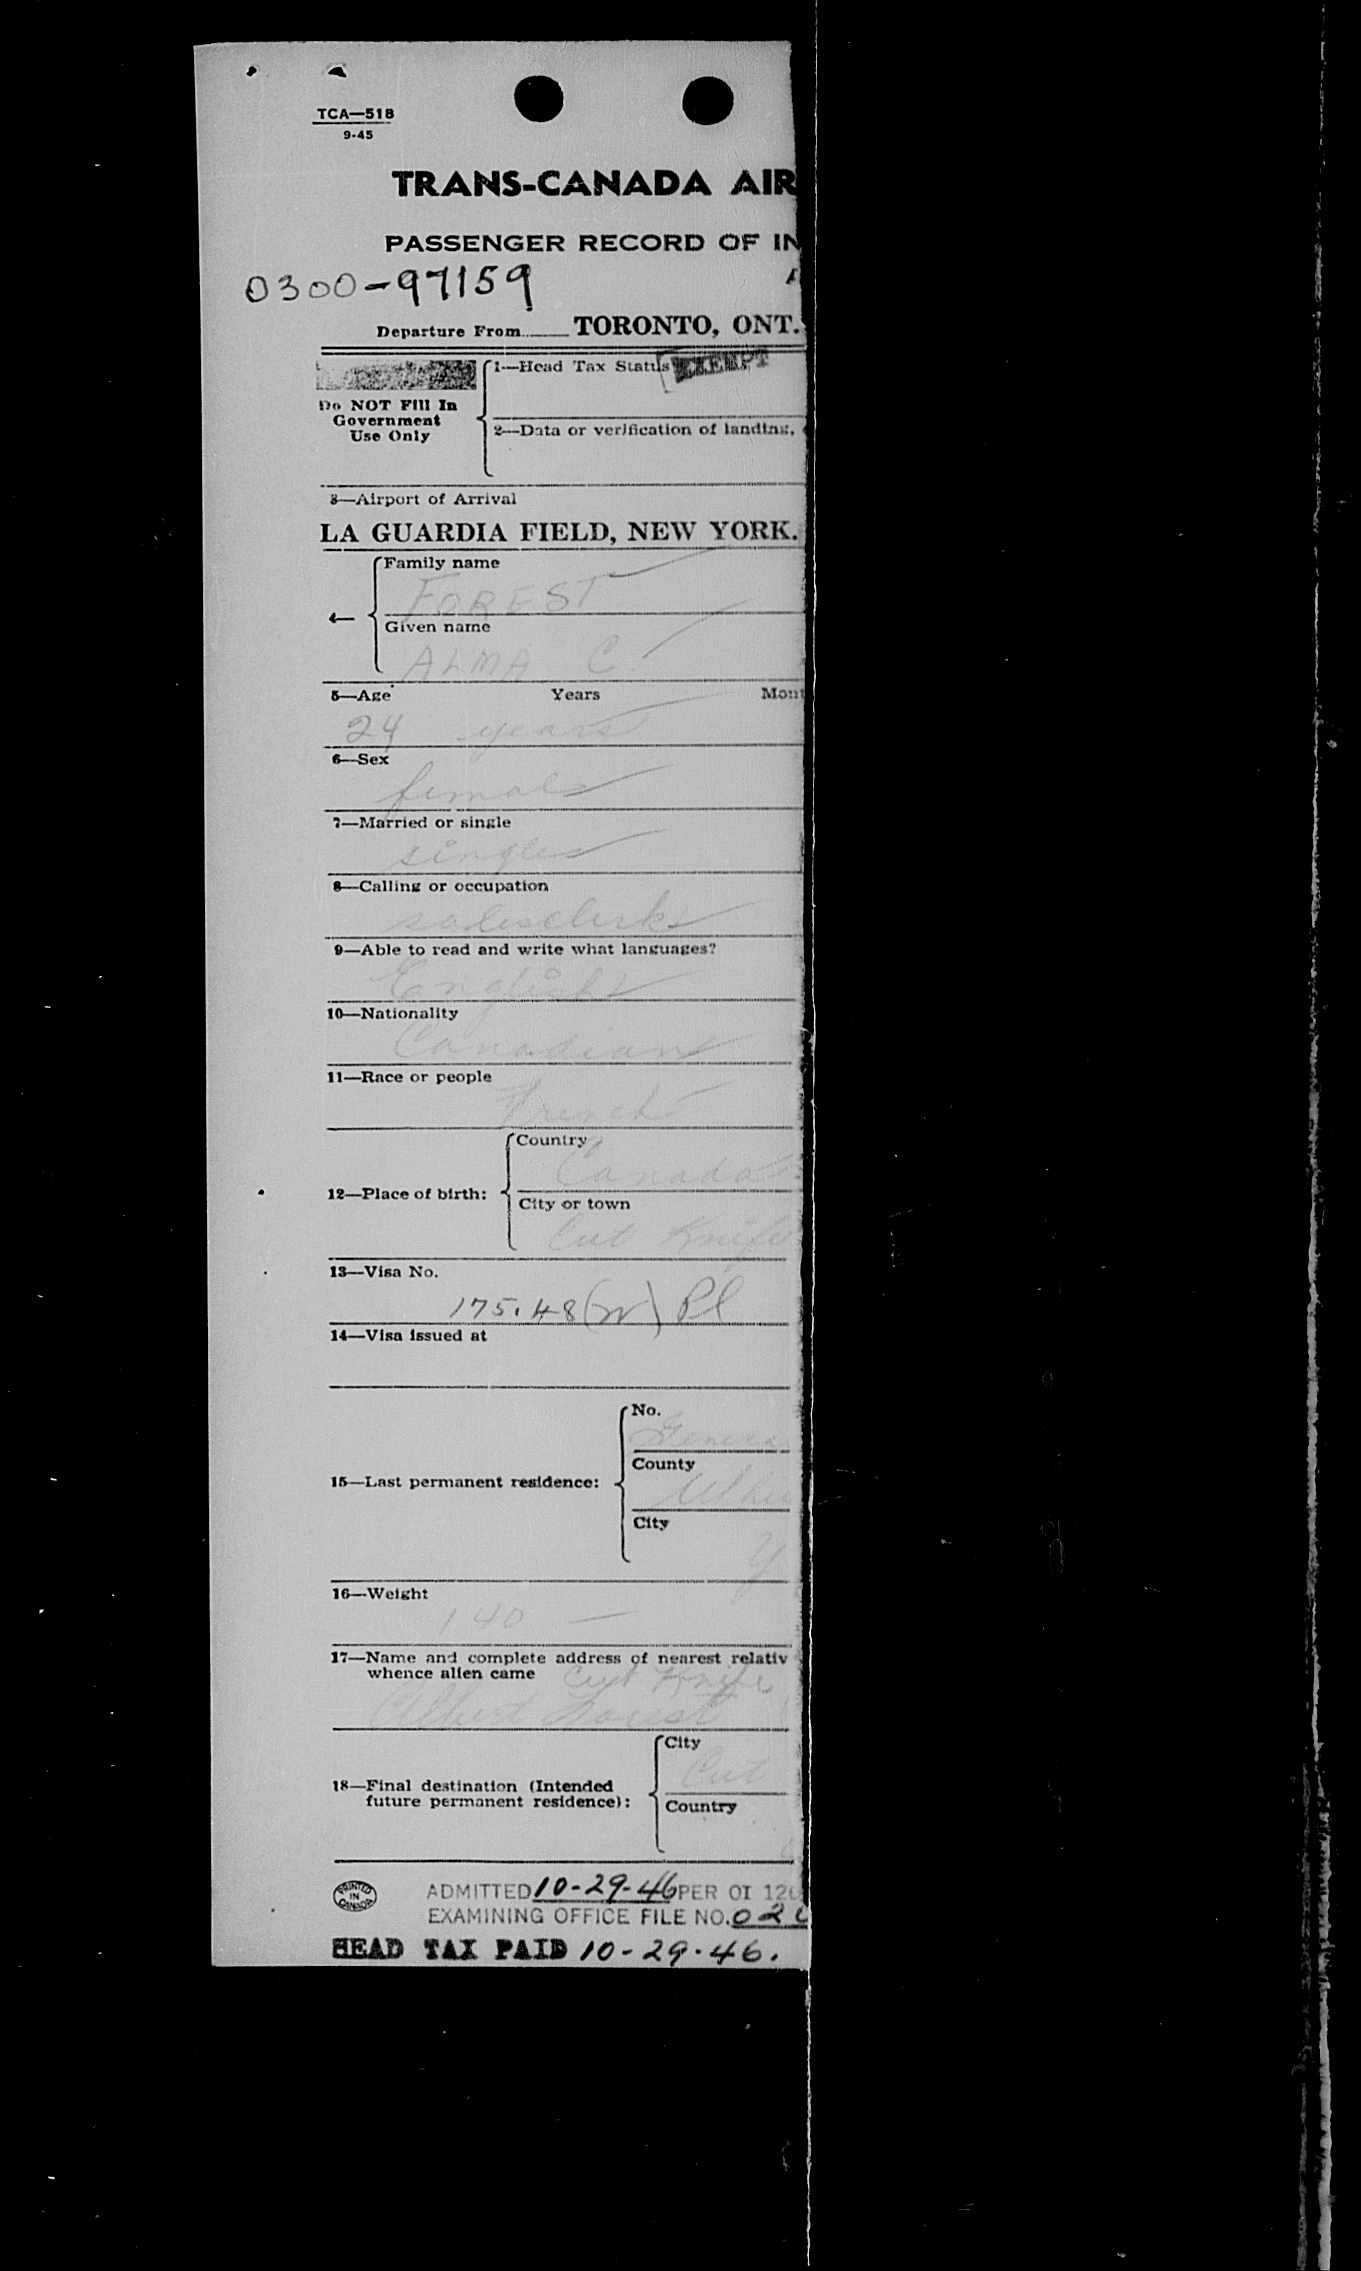 TCA—518
9-45
TRANS-CANADA AIR
PASSENGER RECORD OF IN
0300-97159
Departure From TORONTO, ONT.
1—Head Tax Status EXEMPT
Do NOT Fill In
Government
Use Only
2—Data or verification of landing,
3—Airport of Arrival
LA GUARDIA FIELD, NEW YORK.
Family name
FOREST
Given name
ALMA C.
5—Age Years Mont
24 years
6—Sex
female
7—Married or single
single
8—Calling or occupation
salesclerk
9—Able to read and write what languages?
English
10—Nationality
Canadian
11—Race or people
French
12—Place of birth:
Country
Canada
City or town
Cut Knife
13—Visa No.
175.48
14—Visa issued at
15—Last permanent residence:
No.
County
City
16—Weight
140 —
17—Name and complete address of nearest relativ
whence alien came Cut Knife
Albert Forest
18—Final destination (Intended
future permanent residence):
City
Cut
Country
PRINTED
IN
CANADA
ADMITTED 10-29-46 PER OI 126
EXAMINING OFFICE FILE NO. 02
HEAD TAX PAID 10-29-46.